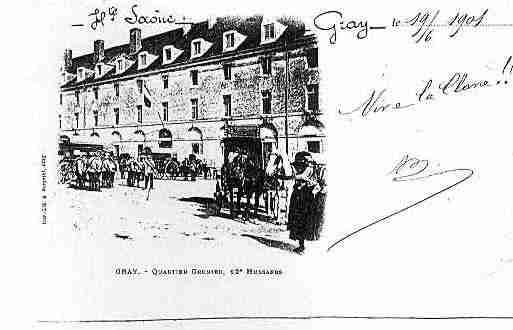 Hte Saône
Gray, le 19/6 1901
Vive la Classe !!
GRAY. - QUARTIER GRENIER, 12e HUSSARDS